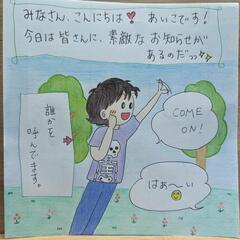 みなさん、こんにちは❣ あいこです!
今日は皆さんに、素敵なお知らせが
あるのだっっ✨
COME
ON!
誰かを
呼んでます。
はぁ〜い